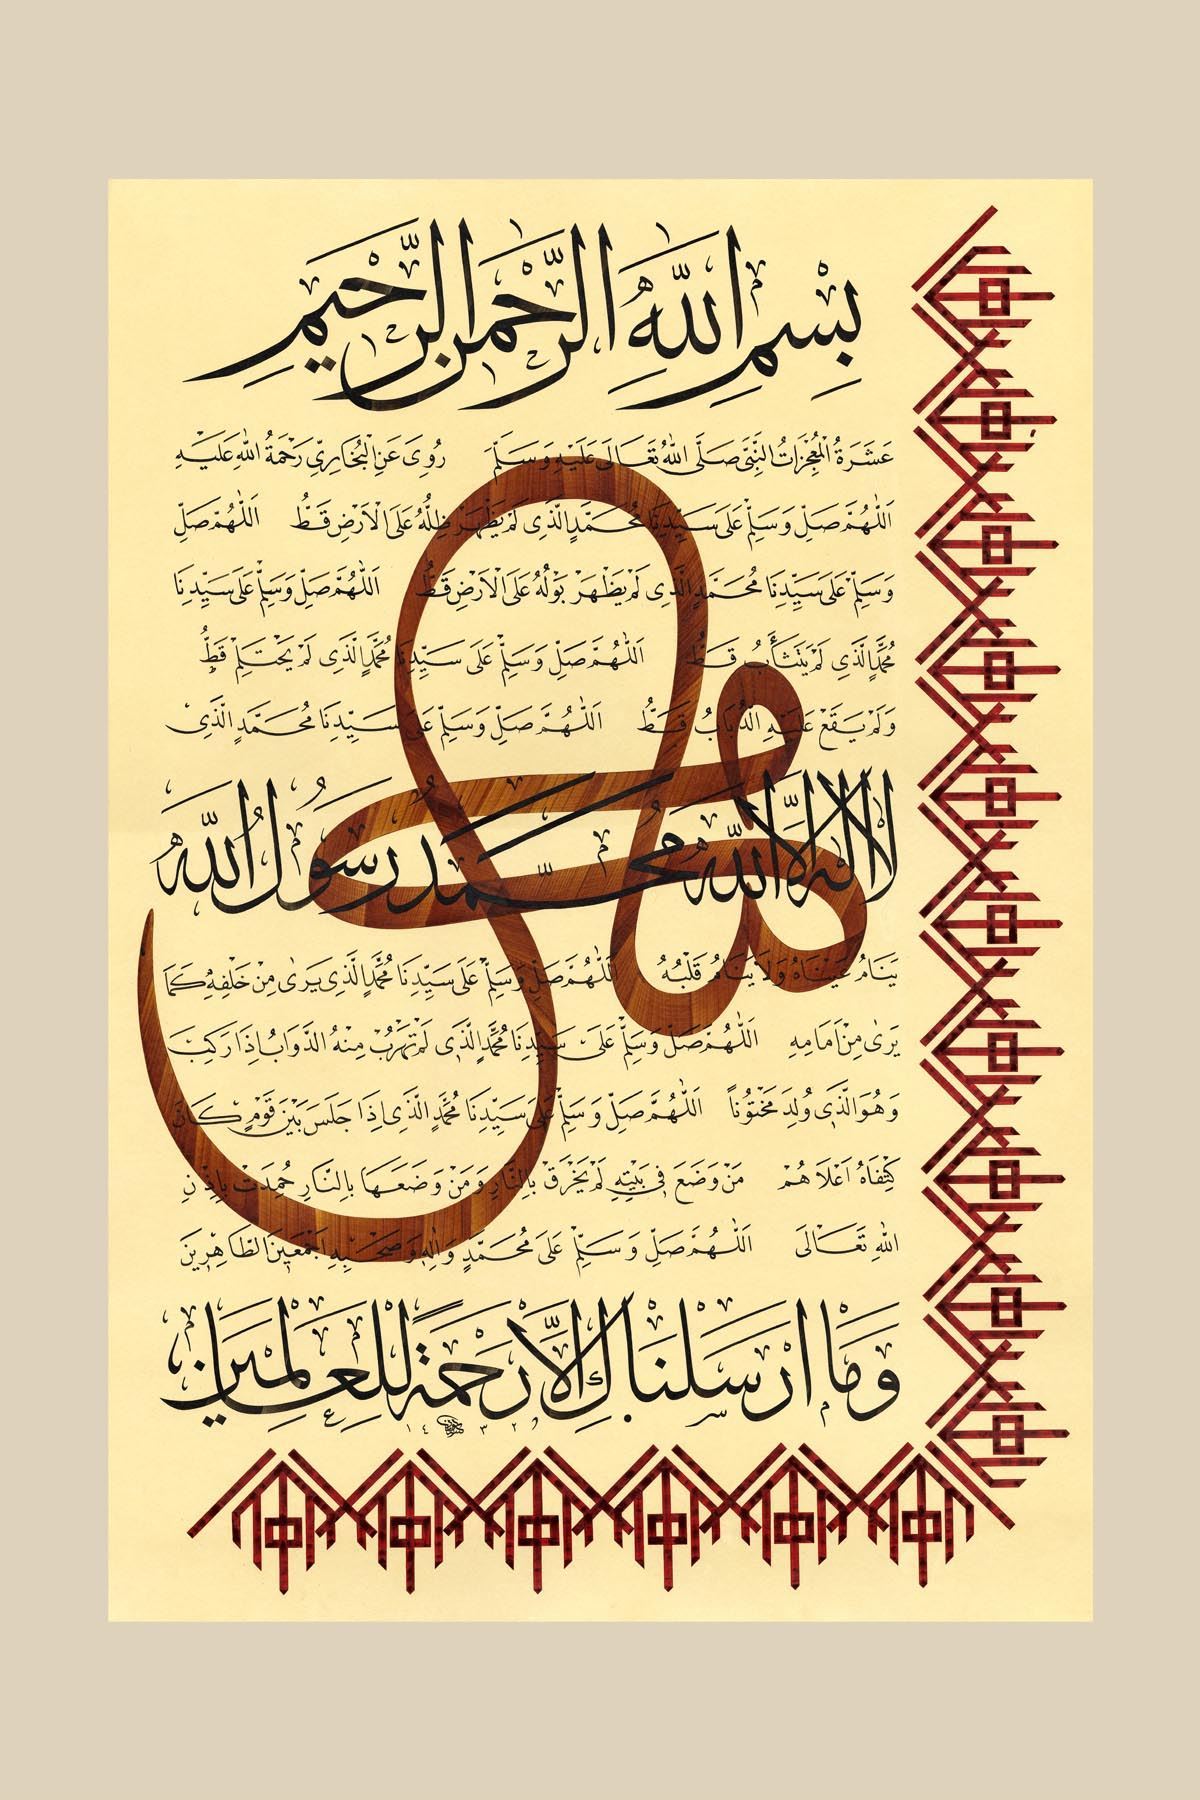 بِسْمِ اللّٰهِ الرَّحْمٰنِ الرَّحِيْمِ
عَشَرَةُ الْمُعْجِزَاتُ النَّبِيِّ صَلَّى اللّٰهُ تَعَالَى عَلَيْهِ وَسَلَّمَ رُوِىَ عَنِ الْبُخَارِيِّ رَحْمَةُ اللّٰهِ عَلَيْهِ
اَللّٰهُمَّ صَلِّ وَسَلِّمْ عَلَى سَيِّدِنَا مُحَمَّدٍ الَّذِى لَمْ يَظْهَرْ ظِلُّهُ عَلَى الْاَرْضِ قَطُّ اَللّٰهُمَّ صَلِّ
وَسَلِّمْ عَلَى سَيِّدِنَا مُحَمَّدٍ الَّذِى لَمْ يَظْهَرْ بَوْلُهُ عَلَى الْاَرْضِ قَطُّ اَللّٰهُمَّ صَلِّ وَسَلِّمْ عَلَى سَيِّدِنَا
مُحَمَّدٍ الَّذِى لَمْ يَتَثَأَبُ قَطُّ اَللّٰهُمَّ صَلِّ وَسَلِّمْ عَلَى سَيِّدِنَا مُحَمَّدٍ الَّذِى لَمْ يَحْتَلِمْ قَطُّ
وَلَمْ يَقَعْ عَلَيْهِ الذُّبَابُ قَطُّ اَللّٰهُمَّ صَلِّ وَسَلِّمْ عَلَى سَيِّدِنَا مُحَمَّدٍ الَّذِى
لَا اِلٰهَ اِلَّا اللّٰهُ مُحَمَّدٌ رَسُوْلُ اللّٰهِ
يَنَامُ عَيْنَاهُ وَلَا يَنَامُ قَلْبُهُ اَللّٰهُمَّ صَلِّ وَسَلِّمْ عَلَى سَيِّدِنَا مُحَمَّدٍ الَّذِى يَرٰى مِنْ خَلْفِهِ كَمَا
يَرٰى مِنْ اَمَامِهِ اَللّٰهُمَّ صَلِّ وَسَلِّمْ عَلَى سَيِّدِنَا مُحَمَّدٍ الَّذِى لَمْ تَهْرُبْ مِنْهُ الدَّوَابُ اِذَا رَكِبَ
وَهُوَ الَّذِى وُلِدَ مَخْتُوْنًا اَللّٰهُمَّ صَلِّ وَسَلِّمْ عَلَى سَيِّدِنَا مُحَمَّدٍ الَّذِى اِذَا جَلَسَ بَيْنَ قَوْمٍ كَانَ
كَتِفَاهُ اَعْلَاهُمْ مَنْ وَضَعَ فِى بَيْتِهِ لَمْ يَخْرَقْ بِالنَّارِ وَمَنْ وَضَعَهَا بِالنَّارِ خُمِدَتْ بِاِذْنِ
اللّٰهِ تَعَالَى اَللّٰهُمَّ صَلِّ وَسَلِّمْ عَلَى مُحَمَّدٍ وَاٰلِهِ وَصَحْبِهِ اَجْمَعِيْنَ الطَّاهِرِيْنَ
وَمَا اَرْسَلْنَاكَ اِلَّا رَحْمَةً لِلْعَالَمِيْنَ